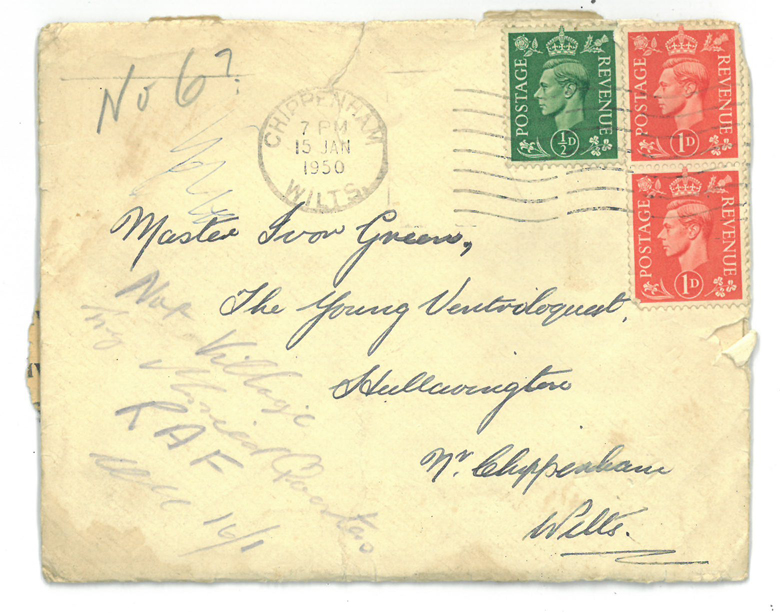 No 6?
CHIPPENHAM
7 PM
15 JAN
1950
WILTS.
POSTAGE REVENUE
½D
POSTAGE REVENUE
1D
POSTAGE REVENUE
1D
Master Ivor Green,
The Young Ventriloquest,
Hullavington
Nr. Chippenham
Wilts.
Not Village
Try Married Quarters
RAF
16/1